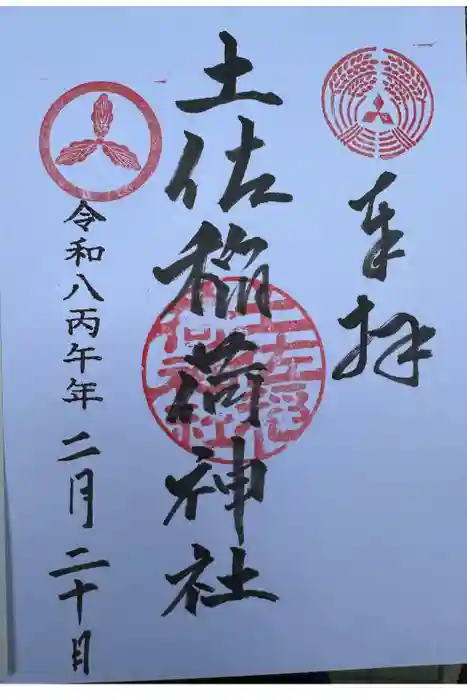 奉拝
土佐稲荷神社
令和八丙午年二月二十日